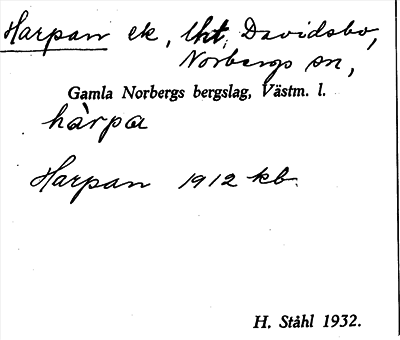 Harpan ek, lht, Davidsbo,
Norbergs sn,
Gamla Norbergs bergslag, Västm. l.
hàrpa
Harpan 1912 kb.
H. Ståhl 1932.